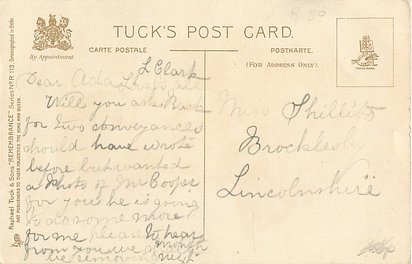 B 80
TUCK'S POST CARD.
CARTE POSTALE
POSTKARTE.
By Appointment
(FOR ADDRESS ONLY.)
TRADE MARK
L Clark
Dear Ada
Will you ask Back
for two conveyances
should have wrote
before but wanted
a Photo of Mr Coopes
for you he is going
to do some more
for me please to hear
from you we
month
be removing next
Miss Phillips
Brocklesby
Lincolnshire
Raphael Tuck & Sons "REMEMBRANCE" Series No 113
ART PUBLISHERS TO THEIR MAJESTIES THE KING AND QUEEN.